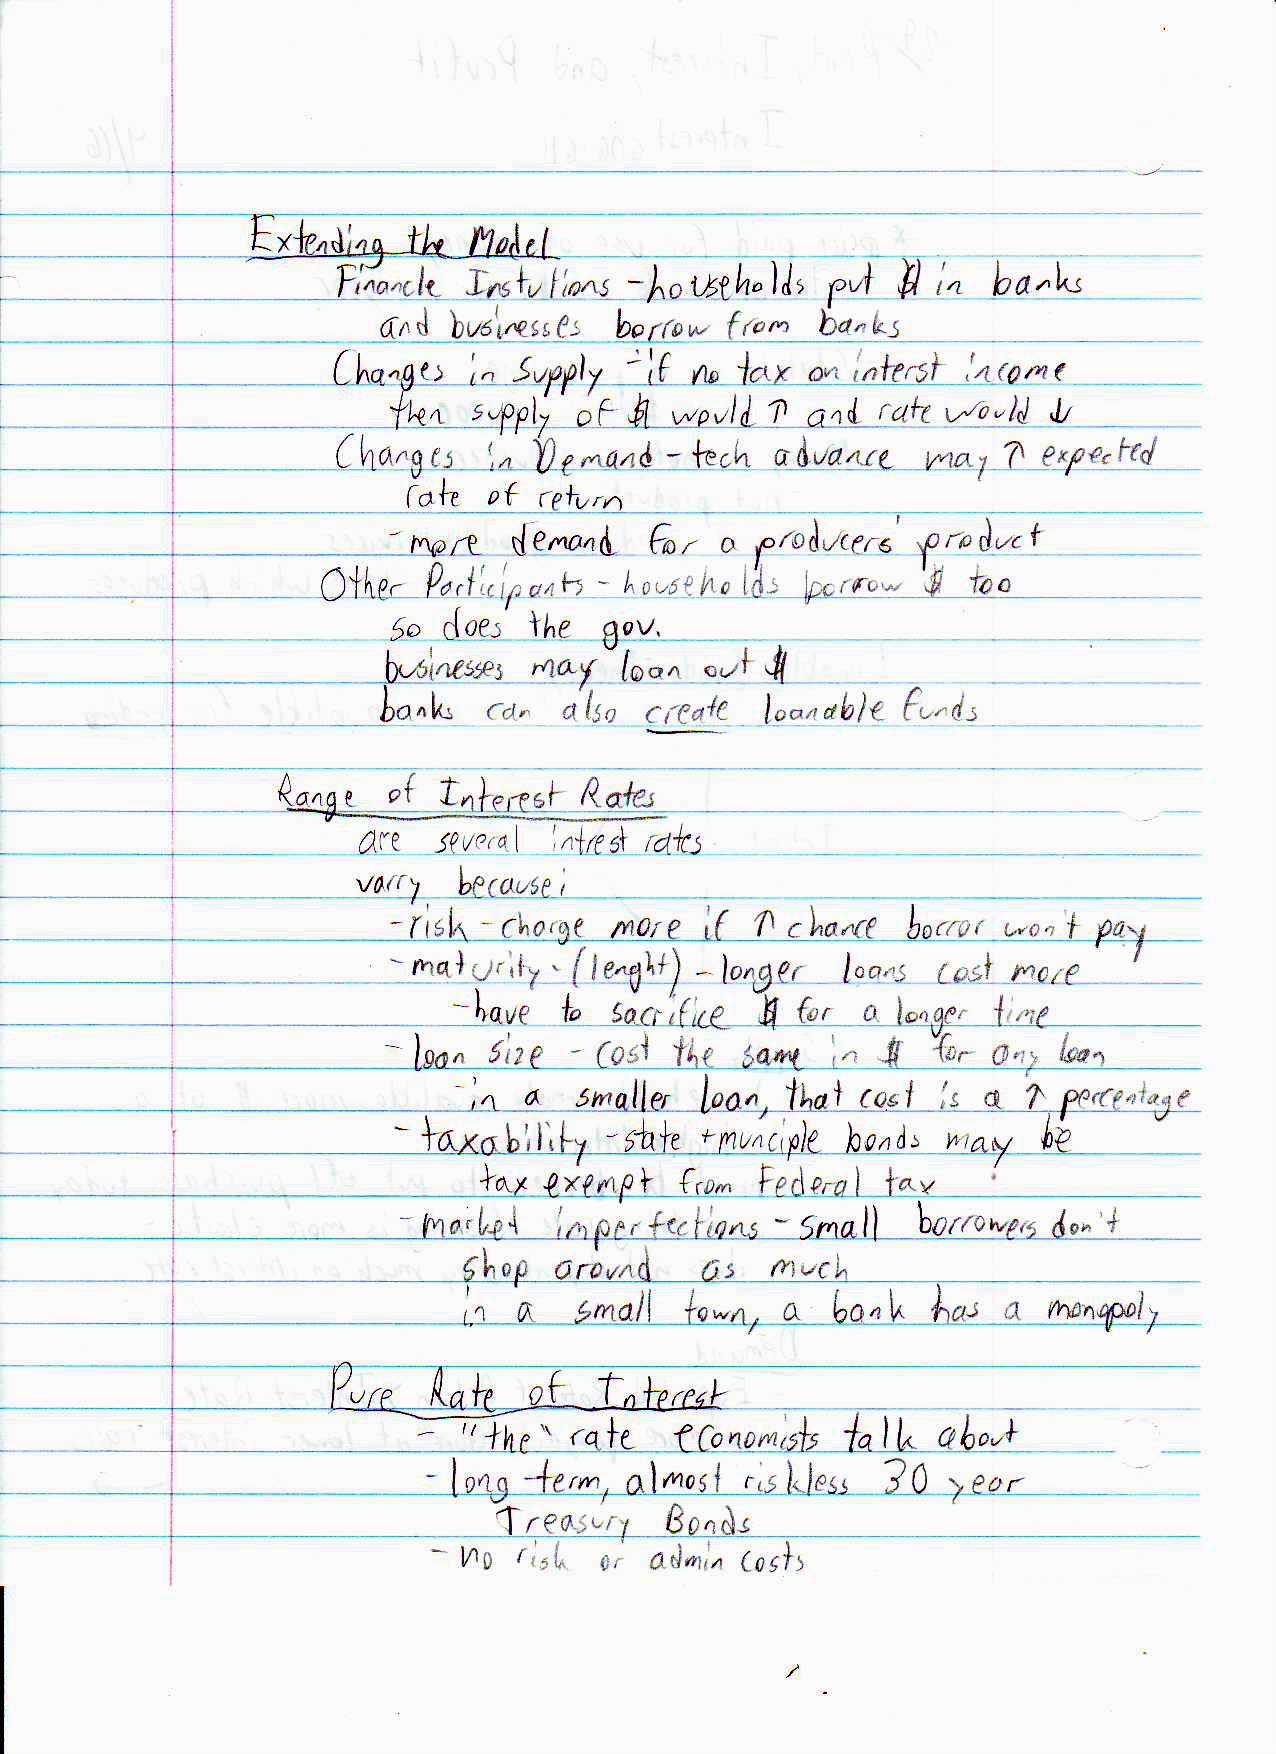 Extending the Model
Financle Instutions - households put $ in banks
and businesses borrow from banks
Changes in Supply - if no tax on interst income
then supply of $ would ↑ and rate would ↓
Changes in Demand - tech advance may ↑ expected
rate of return
- more demand for a producers' product
Other Participants - households borrow $ too
so does the gov.
businesses may loan out $
banks can also create loanable funds
Range of Interest Rates
are several intrest rates
varry because:
- risk - charge more if ↑ chance borror won't pay
- maturity - (lenght) - longer loans cost more
- have to sacrifice $ for a longer time
- loan size - cost the same in $ for any loan
- in a smaller loan, that cost is a ↑ percentage
- taxability - state + munciple bonds may be
tax exempt from Federal tax
- market imperfections - small borrowers don't
shop around as much
in a small town, a bank has a monopoly
Pure Rate of Interest
- "the" rate economists talk about
- long-term, almost riskless 30 year
Treasury Bonds
- no risk or admin costs